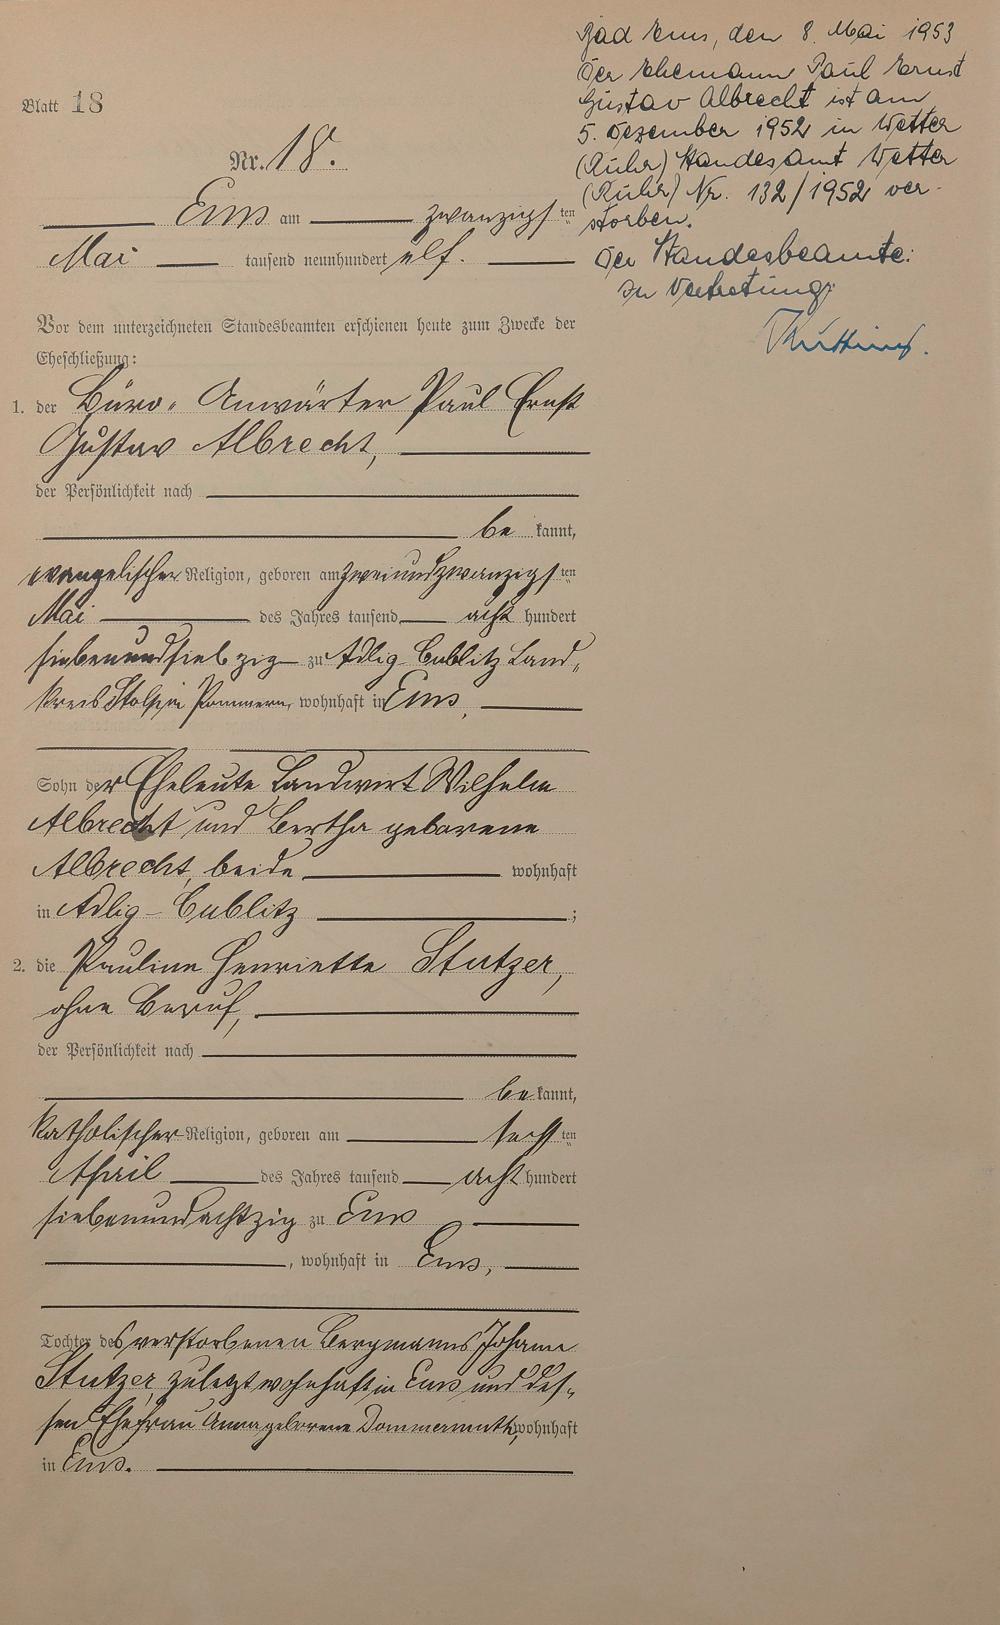 Blatt 18
Nr. 18.
Ems am zwanzigsten
Mai tausend neunhundert elf.
Vor dem unterzeichneten Standesbeamten erschienen heute zum Zwecke der
Eheschließung:
1. der Büro-Anwärter Paul Ernst
Gustav Albrecht,
der Persönlichkeit nach
be kannt,
evangelischer Religion, geboren am zweiundzwanzigsten
Mai des Jahres tausend acht hundert
siebenundsiebzig zu Adlig-Cublitz Land-
kreis Stolp in Pommern, wohnhaft in Ems,
Sohn der Eheleute Landwirt Wilhelm
Albrecht und Bertha geborene
Albrecht, beide wohnhaft
in Adlig-Cublitz ;
2. die Pauline Henriette Stutzer,
ohne Beruf,
der Persönlichkeit nach
be kannt,
katholischer Religion, geboren am sechsten
April des Jahres tausend acht hundert
siebenundachtzig zu Ems
, wohnhaft in Ems,
Tochter des verstorbenen Bergmanns Johann
Stutzer, zuletzt wohnhaft in Ems und des-
sen Ehefrau Anna geborene Dommermuth, wohnhaft
in Ems.
Bad Ems, den 8. Mai 1953
Der Ehemann Paul Ernst
Gustav Albrecht ist am
5. Dezember 1952 in Wetter
(Ruhr) Standesamt Wetter
(Ruhr) Nr. 132/1952 ver-
storben.
Der Standesbeamte:
In Vertretung: